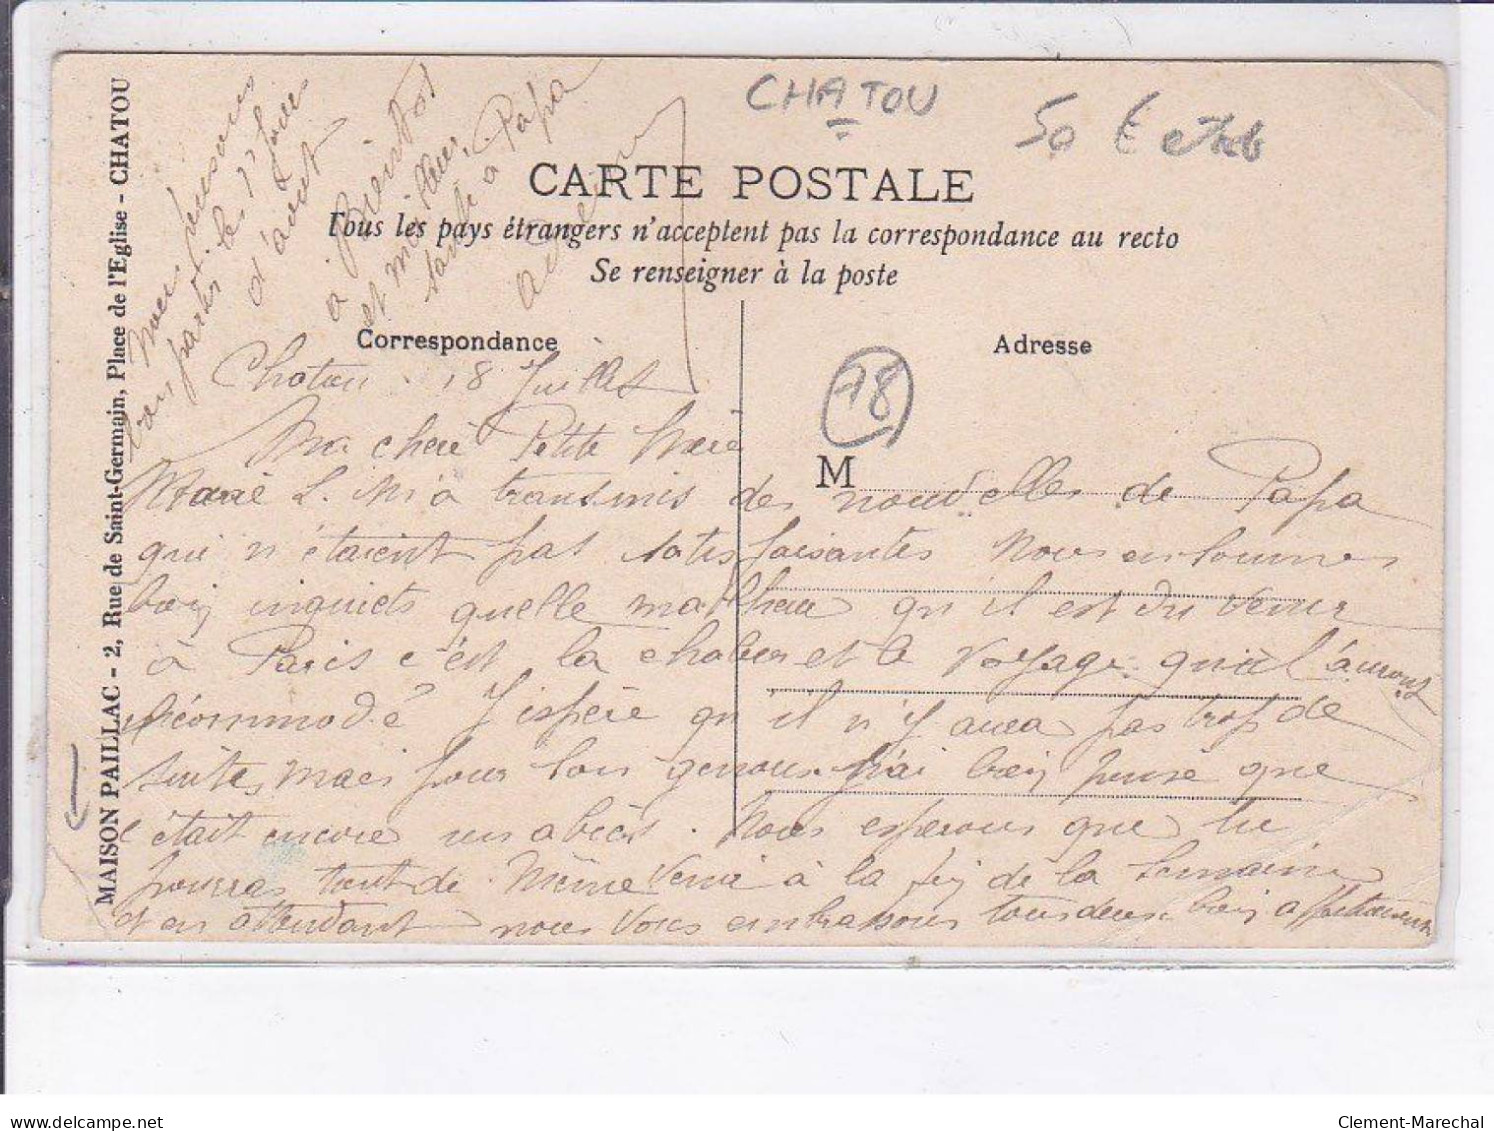 CHATOU
50 €
CARTE POSTALE
Tous les pays étrangers n'acceptent pas la correspondance au recto
Se renseigner à la poste
Correspondance
Adresse
78
M
MAISON PAILLAC - 2, Rue de Saint-Germain, Place de l'Eglise - CHATOU
Chatou. 18 Juillet
Ma cheré Petite Meré
Marié L. M'a transmis des nouvelles de Papa
qui n'étaient pas satisfaisantes Nous en sommes
bien inquiets quelle malheur qu'il est du venir
à Paris c'est la chaleur et le voyage qui l'auront
incommodé J'espére qu'il n'y aura pas trop de
suites, mais pour son genoux j'ai bien pensé que
c'était encore un abcès. Nous esperons que tu
pourras tout de même venir à la fin de la semaine
et en attendant nous vous embrassons tous deux bien affectueusement
Nous pensons
partir le 1er jours
d'aout
a bientot
et meilleur
santé a Papa